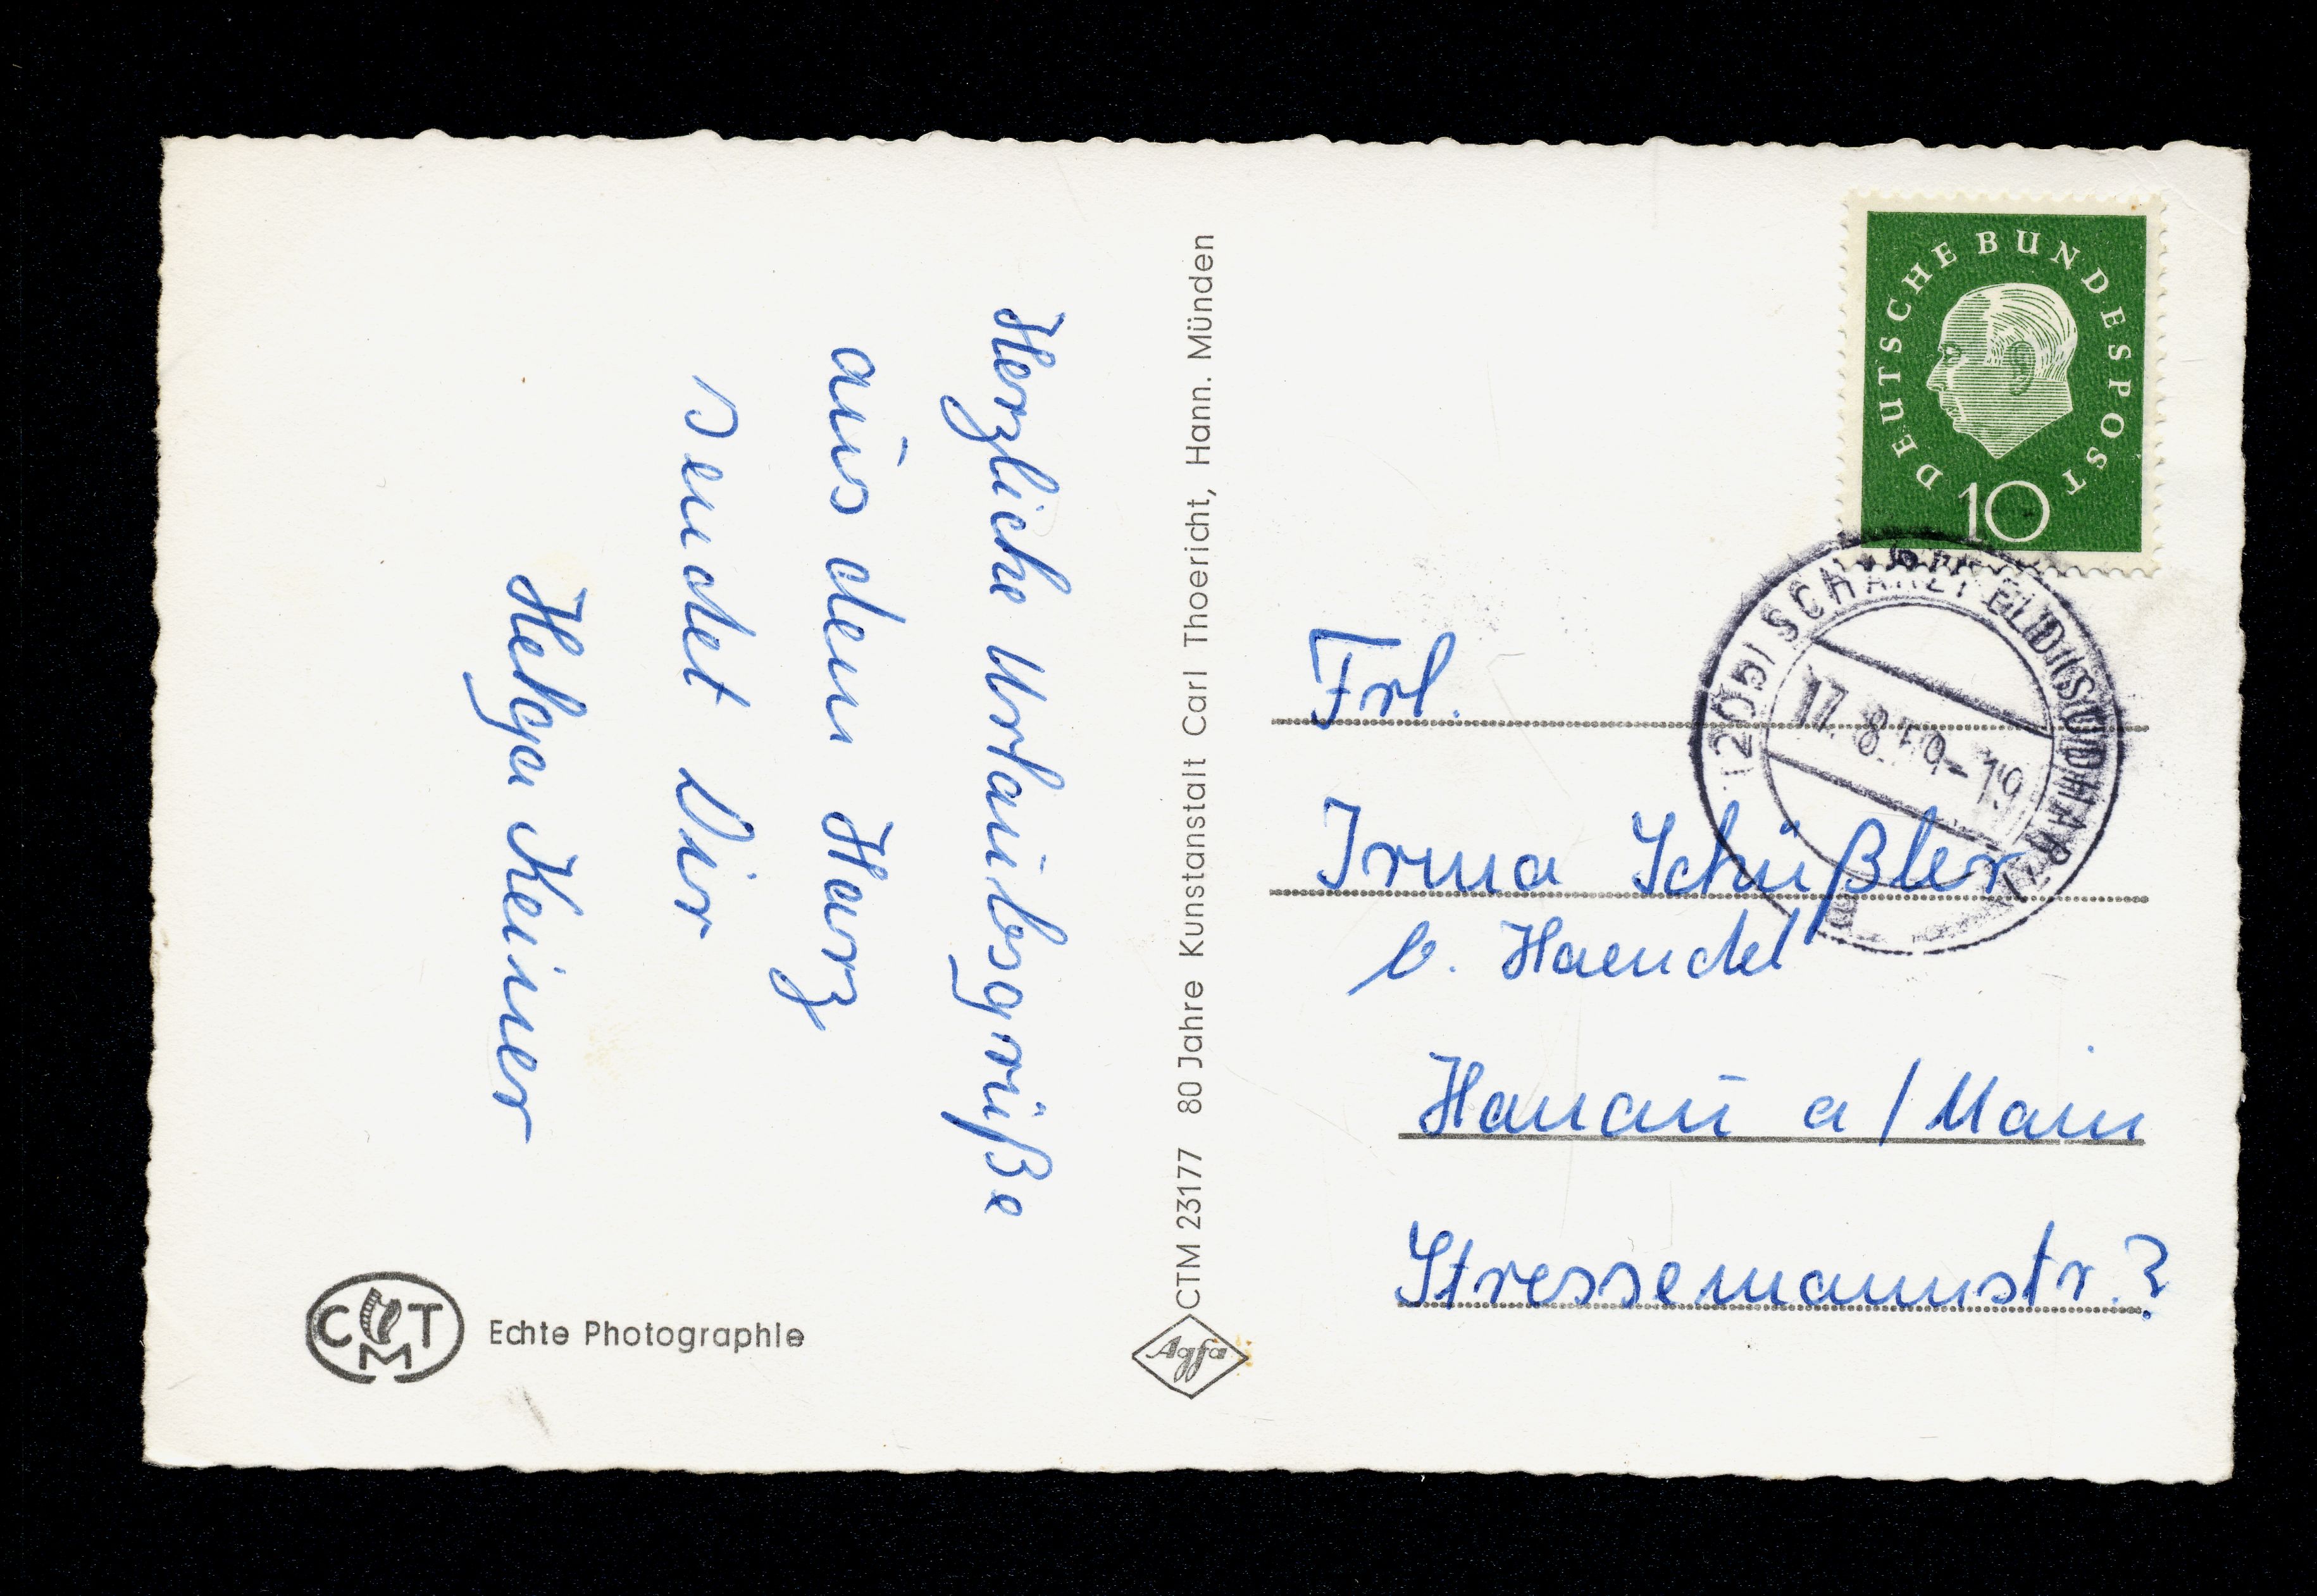 Herzliche Urlaubsgrüße
aus dem Harz
sendet Dir
Helga Keiner
CMT
Echte Photographie
CTM 23177 80 Jahre Kunstanstalt Carl Thoericht, Hann. Münden
Agfa
DEUTSCHE BUNDESPOST
10
(20b) SCHARZFELD (SÜDHARZ)
17.8.59-19
Frl.
Irma Schüßler
b. Haendel
Hanau a/Main
Stressemannstr.?